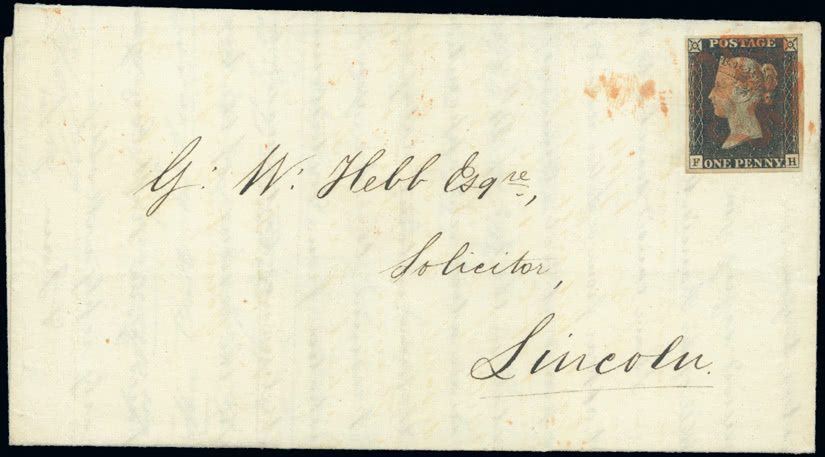 POSTAGE
F ONE PENNY H
G: W: Hebb Esqre,
Solicitor,
Lincoln.